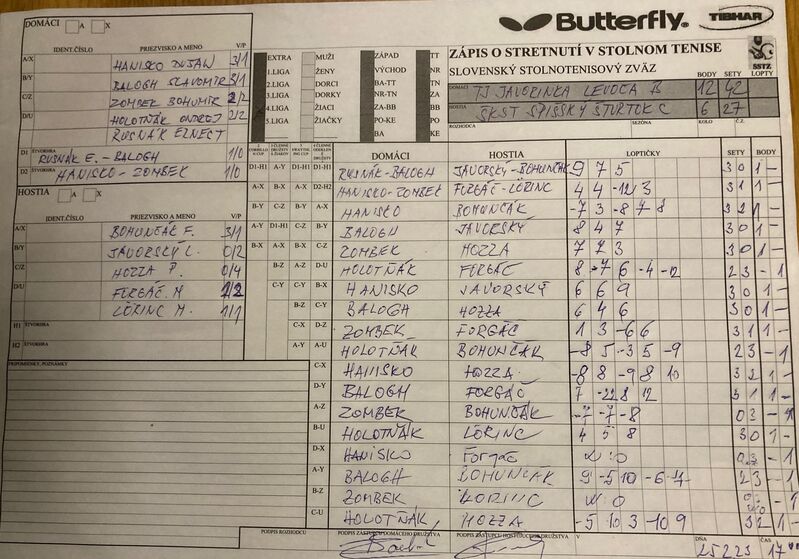 DOMÁCI A X
Butterfly® TIBHAR
IDENT.ČÍSLO PRIEZVISKO A MENO V/P
A/X HANISKO DUŠAN 3/1
B/Y BALOGH SLAVOMÍR 3/1
C/Z ZOMBEK BOHUMÍR 2/2
D/U HOLOTŇÁK ONDREJ 2/2
RUSNÁK ERNEST
D1 ŠTVORHRA RUSNÁK E. - BALOGH 1/0
D2 ŠTVORHRA HANISKO - ZOMBEK 1/0
HOSTIA A X
IDENT.ČÍSLO PRIEZVISKO A MENO V/P
A/X BOHUNČÁK F. 3/1
B/Y JÁVORSKÝ L. 0/2
C/Z HOZZA P. 0/4
D/U FORGÁČ M
LÖRINC M. 1/1
H1 ŠTVORHRA
H2 ŠTVORHRA
PRIPOMIENKY, POZNÁMKY
EXTRA MUŽI ZÁPAD TT
1.LIGA ŽENY VÝCHOD NR
2.LIGA DORCI BA-TT TN
3.LIGA DORKY NR-TN ZA
4.LIGA ŽIACI ZA-BB BB
5.LIGA ŽIAČKY PO-KE PO
BA KE
ZÁPIS O STRETNUTÍ V STOLNOM TENISE
SLOVENSKÝ STOLNOTENISOVÝ ZVÄZ SSTZ
BODY SETY LOPTY
DOMÁCI TJ JAVORINKA LEVOČA B 12 42
HOSTIA ŠKST SPIŠSKÝ ŠTVRTOK C 6 27
ROZHODCA SEZÓNA KOLO Č.Z.
DOMÁCI HOSTIA LOPTIČKY SETY BODY
D1-H1 A-Y D1-H1 RUSNÁK-BALOGH JÁVORSKÝ-BOHUNČÁK 9 7 5 3 0 1 -
A-X B-X A-X D2-H2 HANISKO-ZOMBEK FORGÁČ-LÖRINC 4 4 -12 3 3 1 1 -
B-Y C-Z B-Y A-X HANISKO BOHUNČÁK -7 3 -8 7 8 3 2 1 -
A-Y D1-H1 C-Z B-Y BALOGH JÁVORSKÝ 8 4 7 3 0 1 -
B-X A-X B-X C-Z ZOMBEK HOZZA 7 7 3 3 0 1 -
B-Z A-Z D-U HOLOTŇÁK FORGÁČ 8 -7 6 -4 -12 2 3 - 1
C-Y C-Y B-X HANISKO JAVORSKÝ 6 6 9 3 0 1 -
B-Z C-Y BALOGH HOZZA 6 4 6 3 0 1 -
C-X D-Z ZOMBEK FORGÁČ 1 3 -6 6 3 1 1 -
A-Y A-U HOLOTŇÁK BOHUNČÁK -8 5 -3 5 -9 2 3 - 1
C-X HANISKO HOZZA -8 8 -9 8 10 3 2 1 -
D-Y BALOGH FORGÁČ 7 8 12 3 1 1 -
A-Z ZOMBEK BOHUNČÁK -7 -7 -8 0 3 -
B-U HOLOTŇÁK LÖRINC 4 5 8 3 0 1 -
D-X HANISKO FORGÁČ W:O - 1
A-Y BALOGH BOHUNČÁK 9 -5 10 -6 -4 2 3 - 1
B-Z ZOMBEK LORINC W:O
C-U HOLOTŇÁK HOZZA -5 10 3 -10 9 3 2 1 -
PODPIS ROZHODCU PODPIS ZÁSTUPCU DOMÁCEHO DRUŽSTVA PODPIS ZÁSTUPCU HOSŤUJÚCEHO DRUŽSTVA V DŇA 25 2 23 ČAS 17